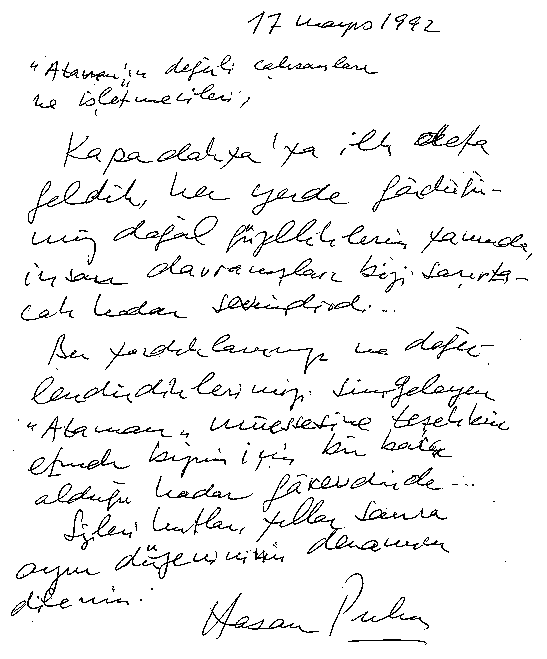 17 mayıs 1992
"Ataman"ın değerli çalışanları
ve işletmecileri,
Kapadokya'ya ilk defa
geldik, her yerde gördüğü-
müz doğal güzelliklerin yanında,
insan davranışları bizi şaşırta-
cak kadar sevindirdi...
Bu yazdıklarımız ve değer-
lendirdiklerimizi simgeleyen
"Ataman" müessesine teşekkür
etmek bizim için bir borç
olduğu kadar görevdir de...
Sizleri kutlar, yıllar sonra
aynı düzeninizin devamını
dilerim.
Hasan Pulur